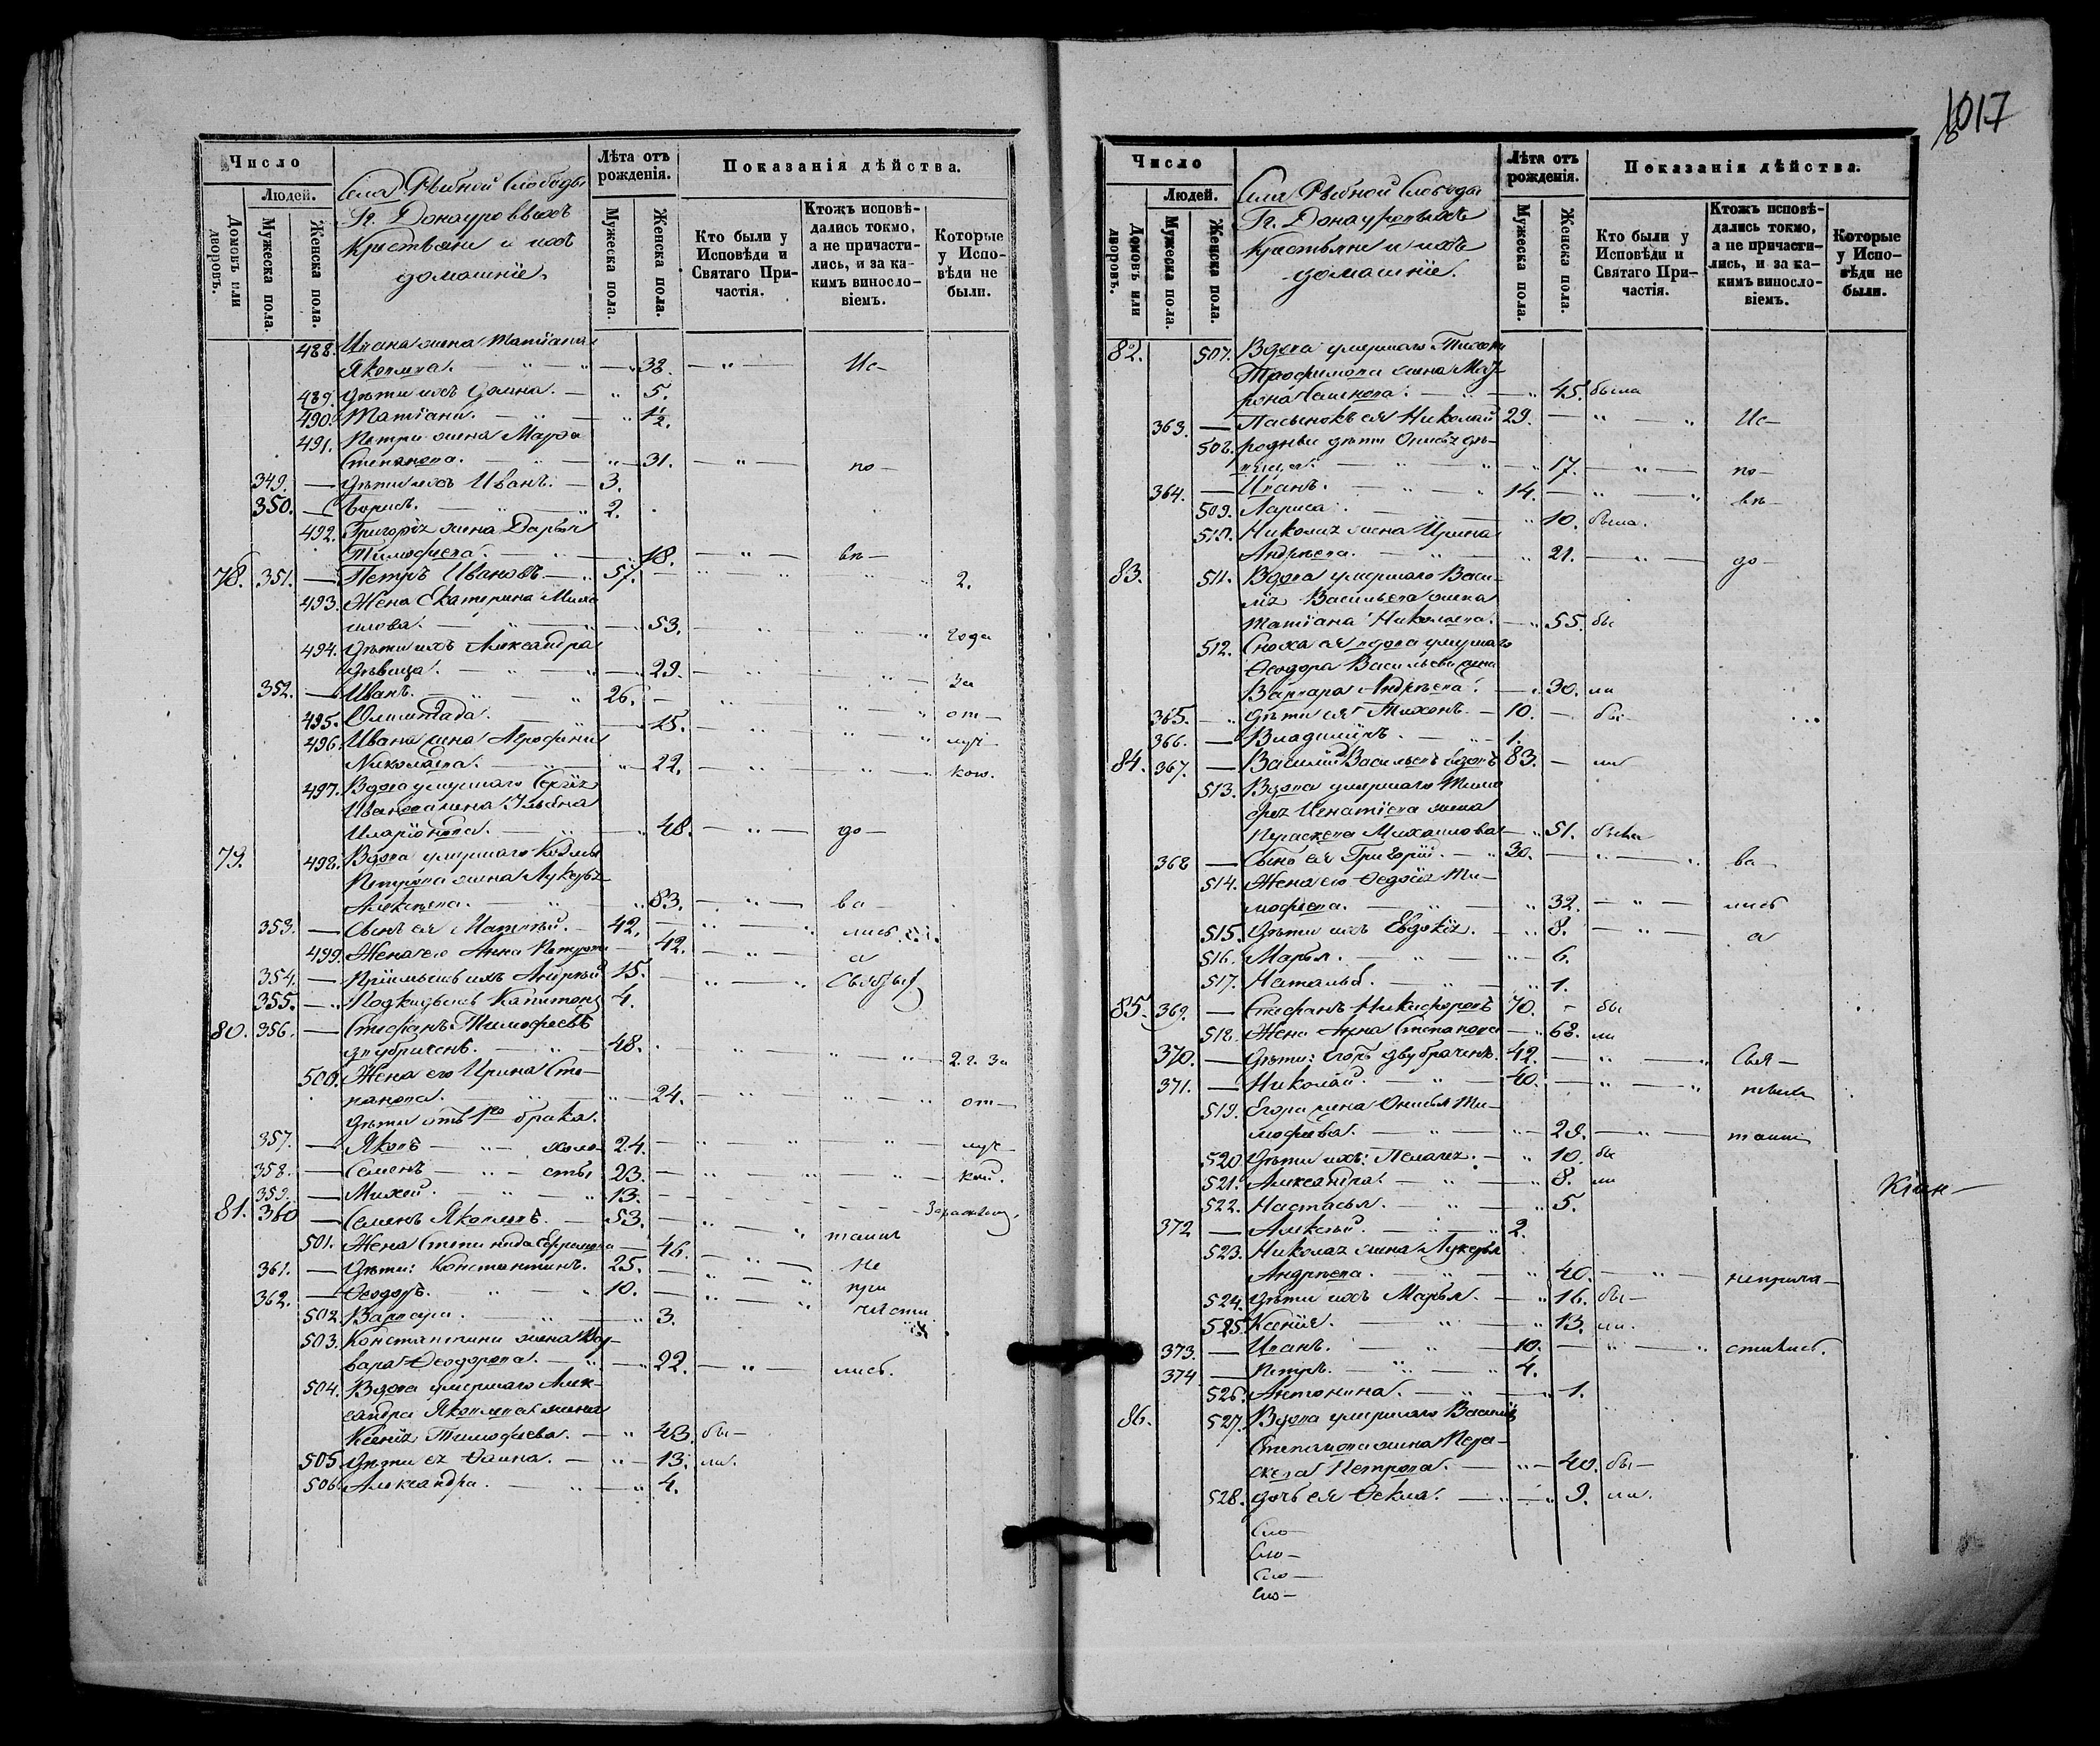 Число
Людей.
Домовъ или дворовъ.
Мужеска пола.
Женска пола.
Села Рыбной Слободы
Гг. Донауровыхъ
Крестьяне и ихъ
домашніе.
Лѣта отъ рожденія.
Мужеска пола.
Женска пола.
Показанія дѣйства.
Кто были у Исповѣди и Святаго Причастія.
Ктожъ исповѣдались токмо, а не причастились, и за какимъ винословіемъ.
Которые у Исповѣди не были.
488. Ивана жена Татіана
Яковлева. 38. Ис-
489. Дѣти ихъ Домна. 5.
490. Татіана. 1/2.
491. Петра жена Марѳа
Степанова. 31. по-
349. Дѣти ихъ Иванъ. 3.
350. Борисъ. 2.
492. Григорія жена Дарья
Тимофеева. 18. вѣ-
78. 351. Петръ Ивановъ 57. 2.
493. Жена Екатерина Миха
илова. 53. года
494. Дѣти ихъ Александра
дѣвица. 29. За
352. Иванъ. 26. от-
495. Олимпіада. 15. луч-
496. Ивана жена Агрофина
Николаева. 22. кою.
497. Вдова умершаго Сергія
Иванова жена Ульяна
Иларіонова. 48. до-
79. 498. Вдова умершаго Козьмы
Петрова жена Лукерья
Алексѣева. 83. ва-
353. Сынъ ея Матвѣй. 42. лись
499. Жена его Анна Петрова 42. а
354. Пріимышъ ихъ Андрей 15. Святых
355. Подкидышъ Капитонъ 4.
80. 356. Стефанъ Тимофеевъ
двубраченъ. 48. 2. г. За
500. Жена его Ирина Сте-
панова. 24. от-
Дѣти отъ 1го брака.
357. Яковъ холо- 24. луч-
358. Семенъ сты 23. кой.
359. Михей. 13.
81. 360 Семенъ Яковлевъ. 53.
501. Жена Степанида Ефремова 46. таинъ
361. Дѣти: Константинъ. 25. не
362. Ѳеодоръ. 10. при
502. Варвара. 3. части
503. Константина жена Вар-
вара Ѳеодорова. 22. лись.
504. Вдова умершаго Алек-
сандра Яковлева жена
Ксенія Тимофеева. 43. бы-
505. Дѣти ея Ѳаина. 13. ли.
506. Александра. 4.
1017
Число
Людей.
Домовъ или дворовъ.
Мужеска пола.
Женска пола.
Села Рыбной Слободы
Гг. Донауровыхъ
Крестьяне и ихъ
домашніе.
Лѣта отъ рожденія.
Мужеска пола.
Женска пола.
Показанія дѣйства.
Кто были у Исповѣди и Святаго Причастія.
Ктожъ исповѣдались токмо, а не причастились, и за какимъ винословіемъ.
Которые у Исповѣди не были.
82. 507. Вдова умершаго Тихона
Трофимова жена Мат
рона Семенова. 45. была
363. Пасынокъ ея Николай 29. Ис-
508. родные дѣти Онисья дѣ-
вица. 17. по-
364. Иванъ. 14. вѣ-
509. Лариса. 10. была.
510. Николая жена Ирина
Андреева. 21. до-
83. 511. Вдова умершаго Васи-
лія Васильева жена
Татіана Николаева. 55. бы
512. Сноха ея вдова умершаго
Ѳеодора Васильева жена
Варвара Андреева. 30. ли
365. Дѣти ея Тихонъ. 10. бы-
366. Владиміръ. 1.
84. 367. Василій Васильевъ вдовъ 83. ли
513. Вдова умершаго Тимо
фея Игнатіева жена
Параскева Михаилова 51. была
368 Сынъ ея Григорій. 30. ва-
514. Жена его Ѳедосія Ти-
мофеева. 32. лись
515. Дѣти ихъ Евдокія. 8. а
516. Марья. 6.
517. Наталья. 1.
85. 369. Стефанъ Никифоровъ 70. бы
518. Жена Анна Степанова 68. ли
370. Дѣти: Егоръ двубраченъ. 42. Свя-
371. Николай. 40. тыхъ
519. Егора жена Онисья Ти-
мофеева. 29. таинъ
520. Дѣти ихъ: Пелагея. 10. бы
521. Александра. 8. ли
522. Настасья. 5.
372 Алексѣй. 2.
523. Николая жена Лукерья
Андреева. 40. неприча-
524. Дѣти ихъ Марья. 16. бы-
525. Ксенія. 13. ли.
373. Иванъ. 10. стились.
374 Петръ. 4.
526. Антонина. 1.
86. 527. Вдова умершаго Василія
Степанова жена Пара-
скева Петрова. 40. бы-
528. дочь ея Ѳекла. 9. ли.
Сло-
Сло-
Сло-
Сло-